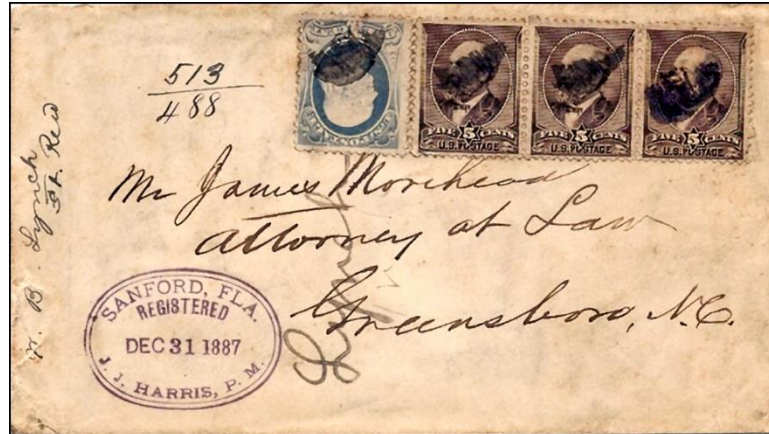 513
488
FIVE 5 CENTS
U.S. POSTAGE
FIVE 5 CENTS
U.S. POSTAGE
FIVE 5 CENTS
U.S. POSTAGE
Mr James Morehead
Attorney at Law
Greensboro, N.C.
SANFORD, FLA.
REGISTERED
DEC 31 1887
J. J. HARRIS, P. M.
B. Lynch